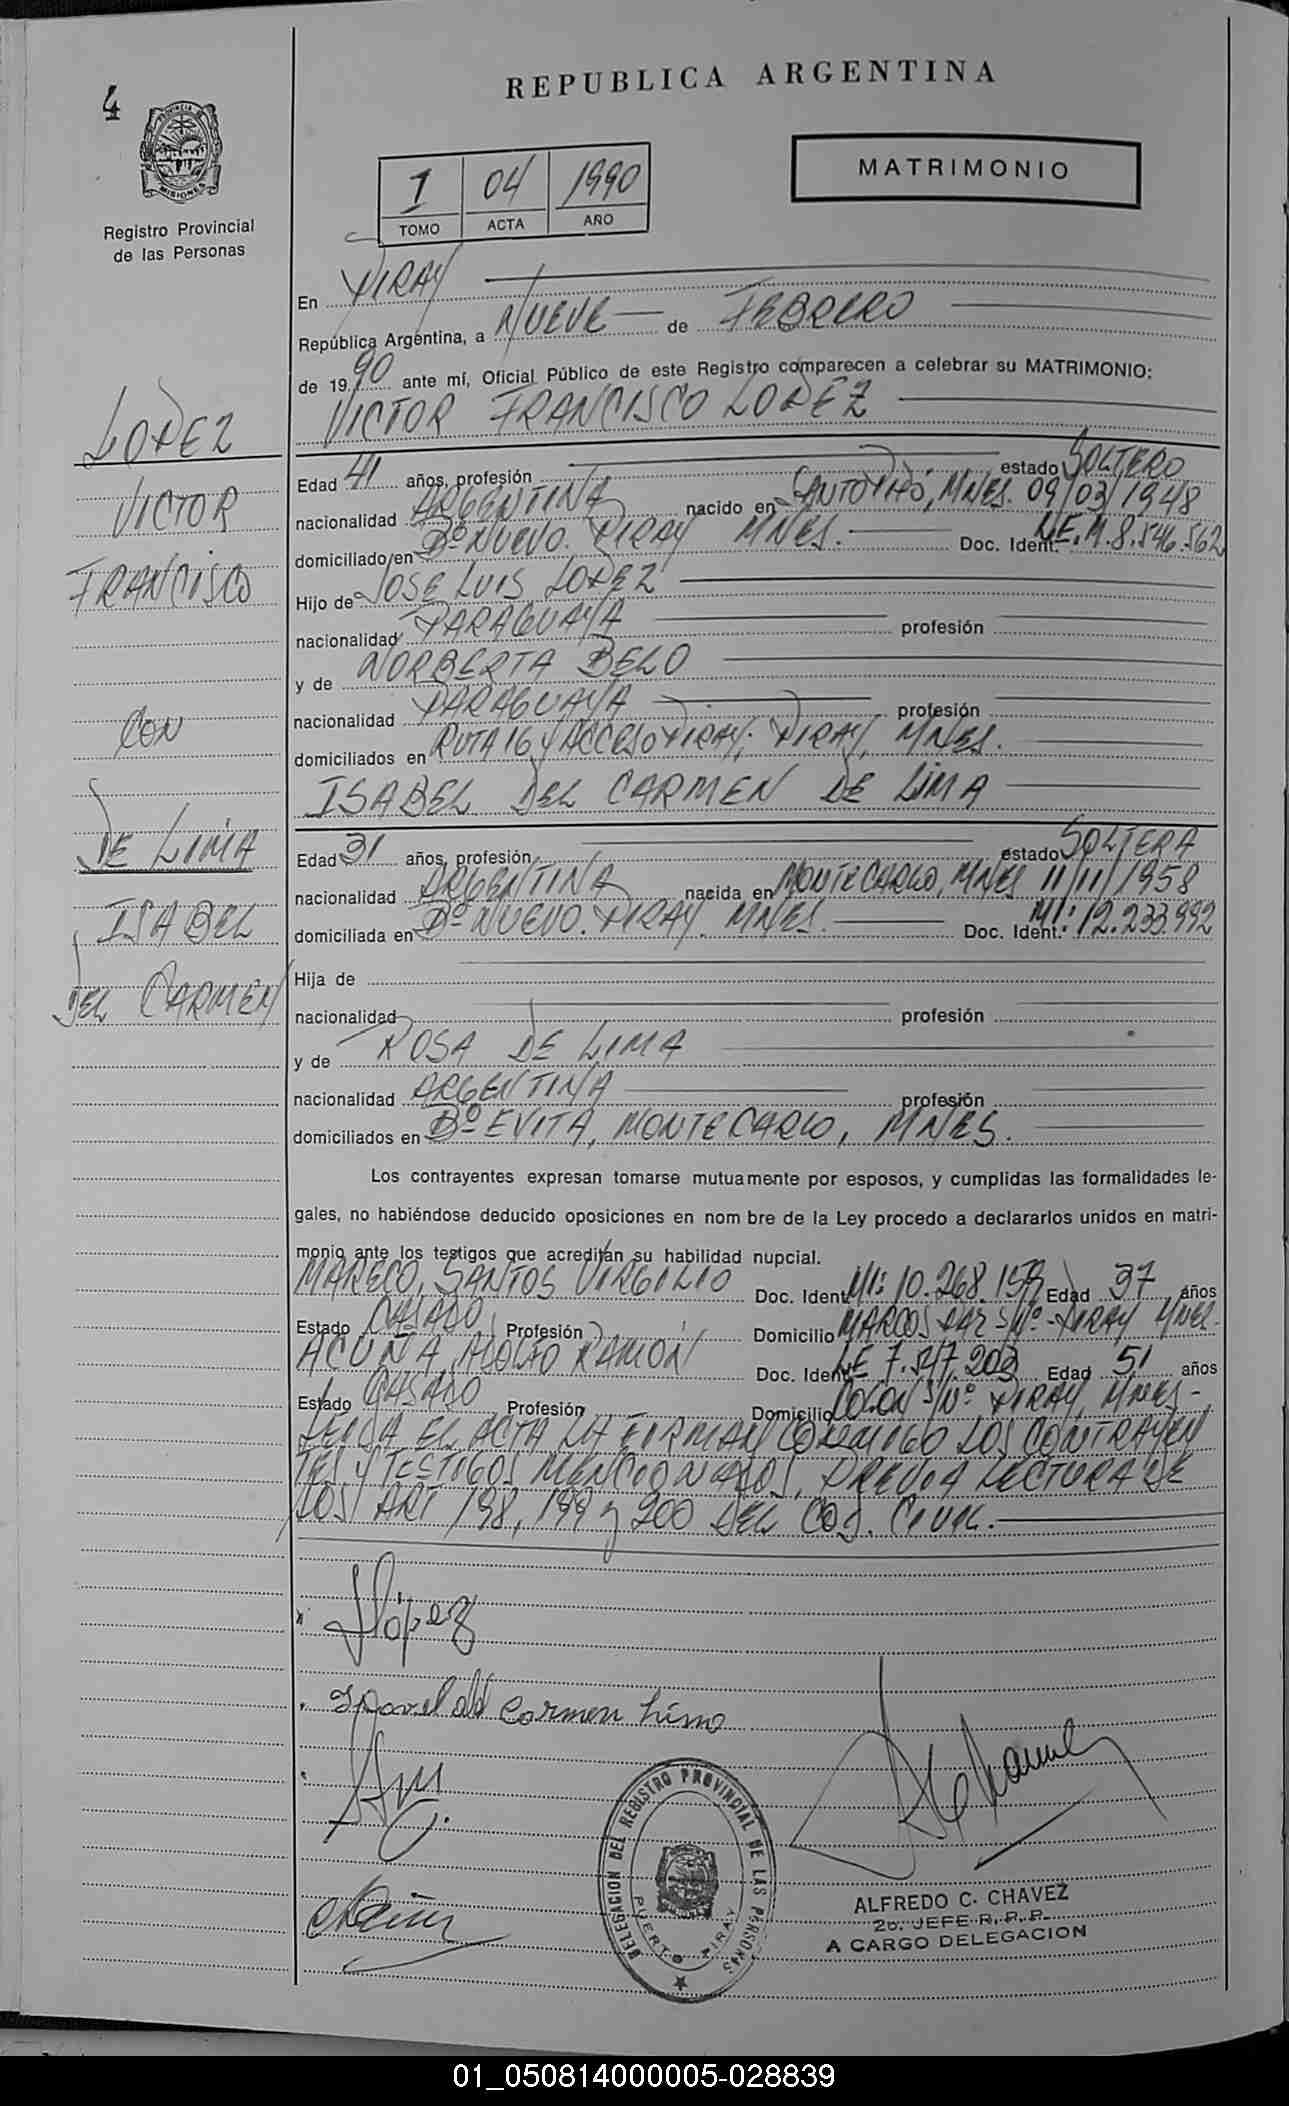 4
REPUBLICA ARGENTINA
PROVINCIA DE
MISIONES
Registro Provincial
de las Personas
1 04 1990
TOMO ACTA AÑO
MATRIMONIO
En PIRAY
República Argentina, a NUEVE de FEBRERO
de 19 90 ante mí, Oficial Público de este Registro comparecen a celebrar su MATRIMONIO:
VICTOR FRANCISCO LOPEZ
LOPEZ
VICTOR
FRANCISCO
CON
DE LIMA
ISABEL
DEL CARMEN
Edad 41 años, profesión estado SOLTERO
nacionalidad ARGENTINA nacido en SANTO PIPÓ, MNES. 09/03/1948
domiciliado en Bº NUEVO. PIRAY MNES. Doc. Ident. L.E. M. 8.546.562
Hijo de JOSE LUIS LOPEZ
nacionalidad PARAGUAYA profesión
y de NORBERTA BELO
nacionalidad PARAGUAYA profesión
domiciliados en RUTA 16 Y ACCESO PIRAY, PIRAY, MNES.
ISABEL DEL CARMEN DE LIMA
Edad 31 años, profesión estado SOLTERA
nacionalidad ARGENTINA nacida en MONTECARLO, MNES 11/11/1958
domiciliada en Bº NUEVO. PIRAY. MNES. Doc. Ident. MI: 12.233.992
Hija de
nacionalidad profesión
y de ROSA DE LIMA
nacionalidad ARGENTINA profesión
domiciliados en Bº EVITA, MONTECARLO, MNES.
Los contrayentes expresan tomarse mutuamente por esposos, y cumplidas las formalidades le-
gales, no habiéndose deducido oposiciones en nom bre de la Ley procedo a declararlos unidos en matri-
monio ante los testigos que acreditan su habilidad nupcial.
MARECO, SANTOS VIRGILIO Doc. Ident. MI: 10.268.159 Edad 37 años
Estado CASADO Profesión Domicilio MARCOS PAZ S/Nº - PIRAY MNES.
ACUÑA, ADOLFO RAMON Doc. Ident. LE 7.517.203 Edad 51 años
Estado CASADO Profesión Domicilio COLON S/Nº PIRAY, MNES-
LEIDA EL ACTA LA FIRMAN CONMIGO LOS CONTRAYEN
TES Y TESTIGOS MENCIONADOS, PREVIA LECTURA DE
LOS ART 198, 199 y 200 DEL COD. CIVIL.
López
Isavel del Carmen Lima
DELEGACION DEL REGISTRO PROVINCIAL DE LAS PERSONAS
PUERTO PIRAY
ALFREDO C. CHAVEZ
2o. JEFE R. P. P.
A CARGO DELEGACION
01_050814000005-028839